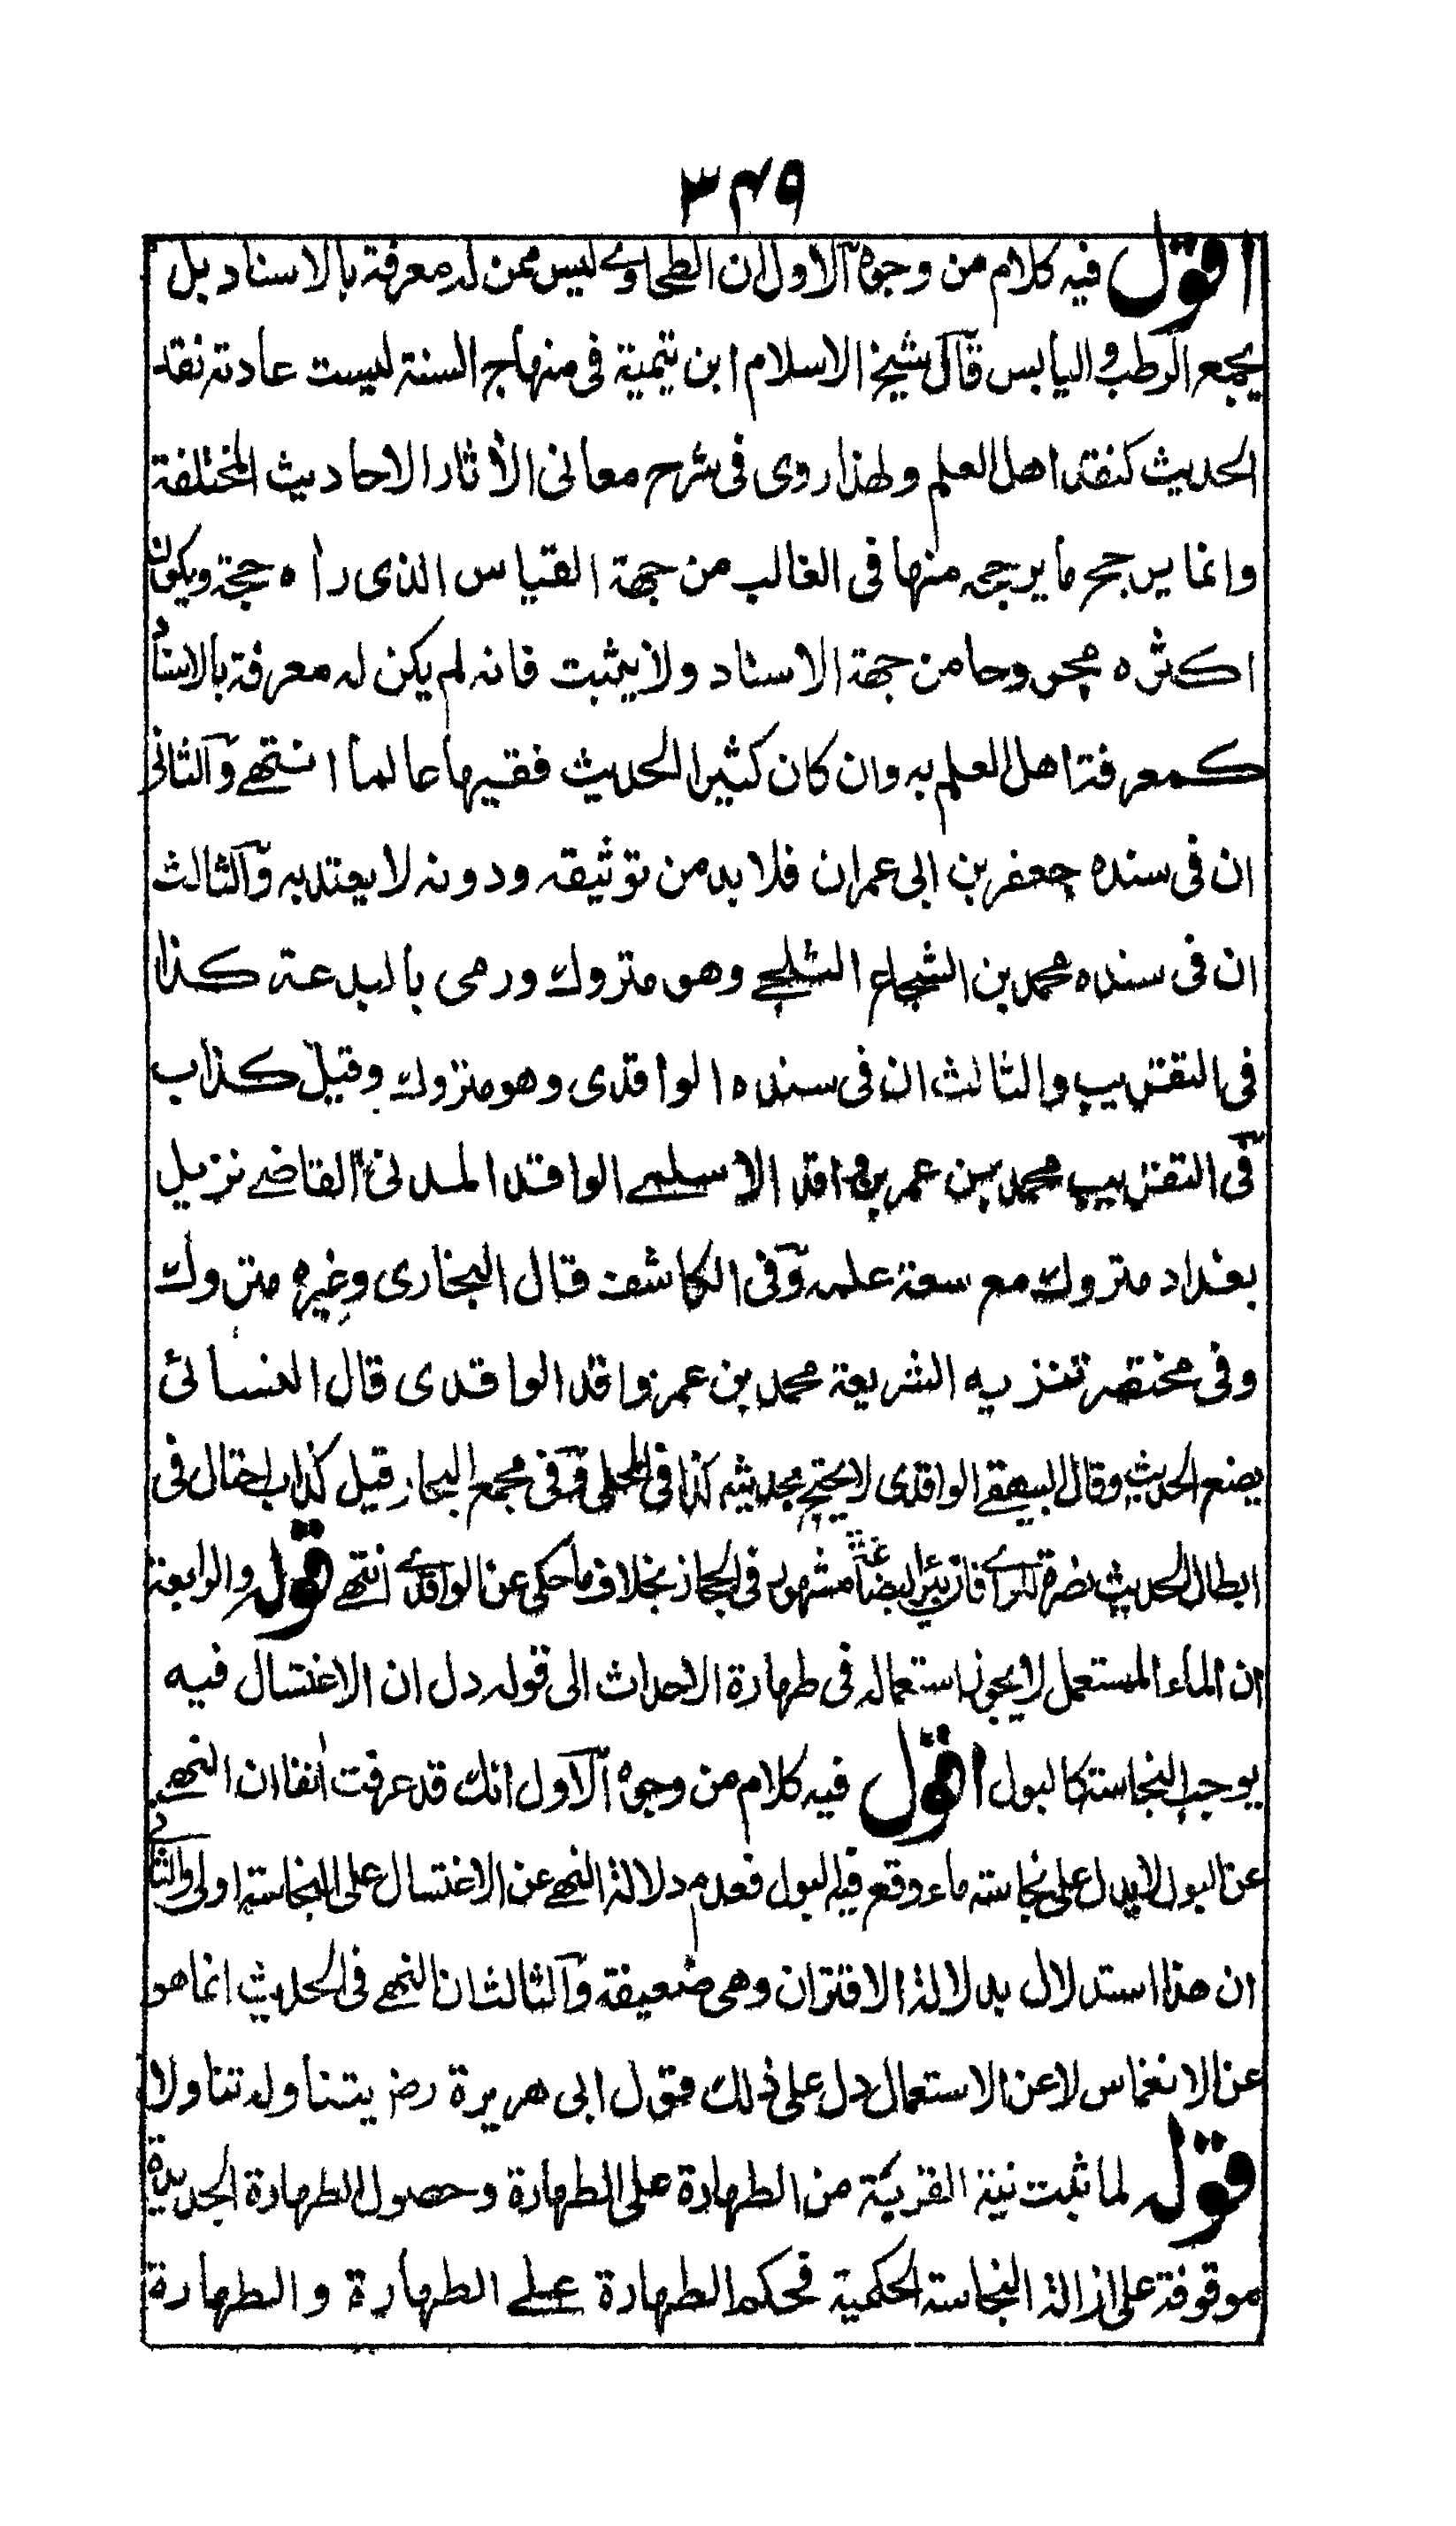 ۳۴۹
اقول فيه كلام من وجوه الاول ان الطحاوے ليس ممن له معرفة بالاسناد بل
يجمع الرطب واليابس قال شيخ الاسلام ابن تيمية فى منهاج السنة ليست عادته نقد
الحديث كنقد اهل العلم ولهذا روى فى شرح معانى الأثار الاحاديث المختلفة
وانما يرجح ما يرجحه منها فى الغالب من جهة القياس الذى رأه حجة ويكون
اكثره مجروحا من جهة الاسناد ولا يثبت فانه لم يكن له معرفة بالاسناد
كمعرفة اهل العلم به وان كان كثير الحديث فقيها عالما انتهے والثانى
ان فى سنده جعفر بن ابى عمران فلا بد من توثيقه ودونه لا يعتد به والثالث
ان فى سنده محمد بن الشجاع الثلجے وهو متروك ورمى بالبدعة كذا
فى التقريب والثالث ان فى سنده الواقدى وهو متروك وقيل كذاب
فى التقريب محمد بن عمر بن واقد الاسلمے الواقد المدنى القاضے نزيل
بغداد متروك مع سعة علمه وفى الكاشف قال البخارى وغيره متروك
وفى مختصر تنزيه الشريعة محمد بن عمر واقد الواقدى قال النسائى
يضع الحديث وقال البيهقے الواقدى لا يحتج بحديثه كذا فى المحلى وفى مجمع البحار قيل كذاب احتال فى
ابطال الحديث نصرة للراے فان بئر بضاعة مشهور فى الحجاز بخلاف ما حكى عن الواقدے انتهے قوله والرابعة
ان الماء المستعمل لا يجوز استعماله فى طهارة الاحداث الى قوله دل ان الاغتسال فيه
يوجب النجاسة كالبول اقول فيه كلام من وجوه الاول انك قد عرفت أنفا ان النهے
عن البول لا يدل على نجاسة ماء وقع فيه البول فعدم دلالة النهے عن الاغتسال على النجاسة اولى والثانے
ان هذا استدلال بدلالة الاقتران وهى ضعيفة والثالث ان النهے فى الحديث انما هو
عن الانغماس لا عن الاستعمال دل على ذلك قول ابى هريرة رض يتناوله تناولا
قوله لما ثبت نية القربة من الطهارة على الطهارة وحصول الطهارة الجديدة
موقوفة على ازالة النجاسة الحكمية فحكم الطهارة علے الطهارة والطهارة